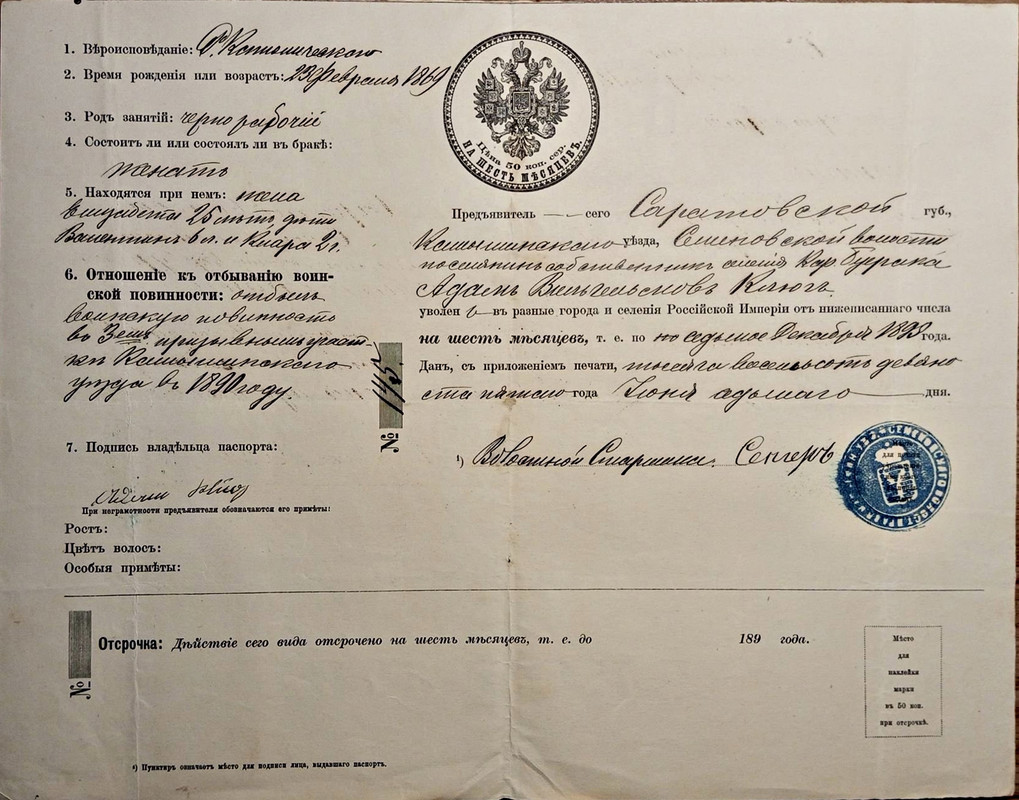 1. Вѣроисповѣданіе: Р. Католическаго
2. Время рожденія или возрастъ: 23 Февраля 1869
3. Родъ занятій: чернорабочій
4. Состоитъ ли или состоялъ ли въ бракѣ:
женатъ
5. Находятся при немъ: жена
Елизавета 25 лѣтъ, дѣти
Валентинъ 6 л. и Клара 2 г.
6. Отношеніе къ отбыванію воин-
ской повинности: отбылъ
воинскую повинность
во 3емъ призывномъ участ-
кѣ Камышинскаго
уѣзда въ 1890 году.
№ 145
7. Подпись владѣльца паспорта:
При неграмотности предъявителя обозначаются его примѣты:
Ростъ:
Цвѣтъ волосъ:
Особыя примѣты:
Цѣна 50 коп. сер.
НА ШЕСТЬ МѢСЯЦЕВЪ.
Предъявитель сего Саратовской губ.,
Камышинскаго уѣзда, Семеновской волости
поселянинъ собственникъ селенія Кар. Буерака
Адамъ Вильгельмовъ Клюгъ
уволенъ въ разные города и селенія Россійской Имперіи отъ нижеписаннаго числа
на шесть мѣсяцевъ, т. е. по седьмое Декабря года.
Данъ, съ приложеніемъ печати, тысяча восемьсотъ девяно
ста пятаго года Іюня дня.
¹) Волостной Старшина. Сенгеръ
Мѣсто
для
Отсрочка: Дѣйствіе сего вида отсрочено на шесть мѣсяцевъ, т. е. до 189 года.
№
Мѣсто
для
наклейки
марки
въ 50 коп.
при отсрочкѣ.
¹) Пунктиръ означаетъ мѣсто для подписи лица, выдавшаго паспортъ.